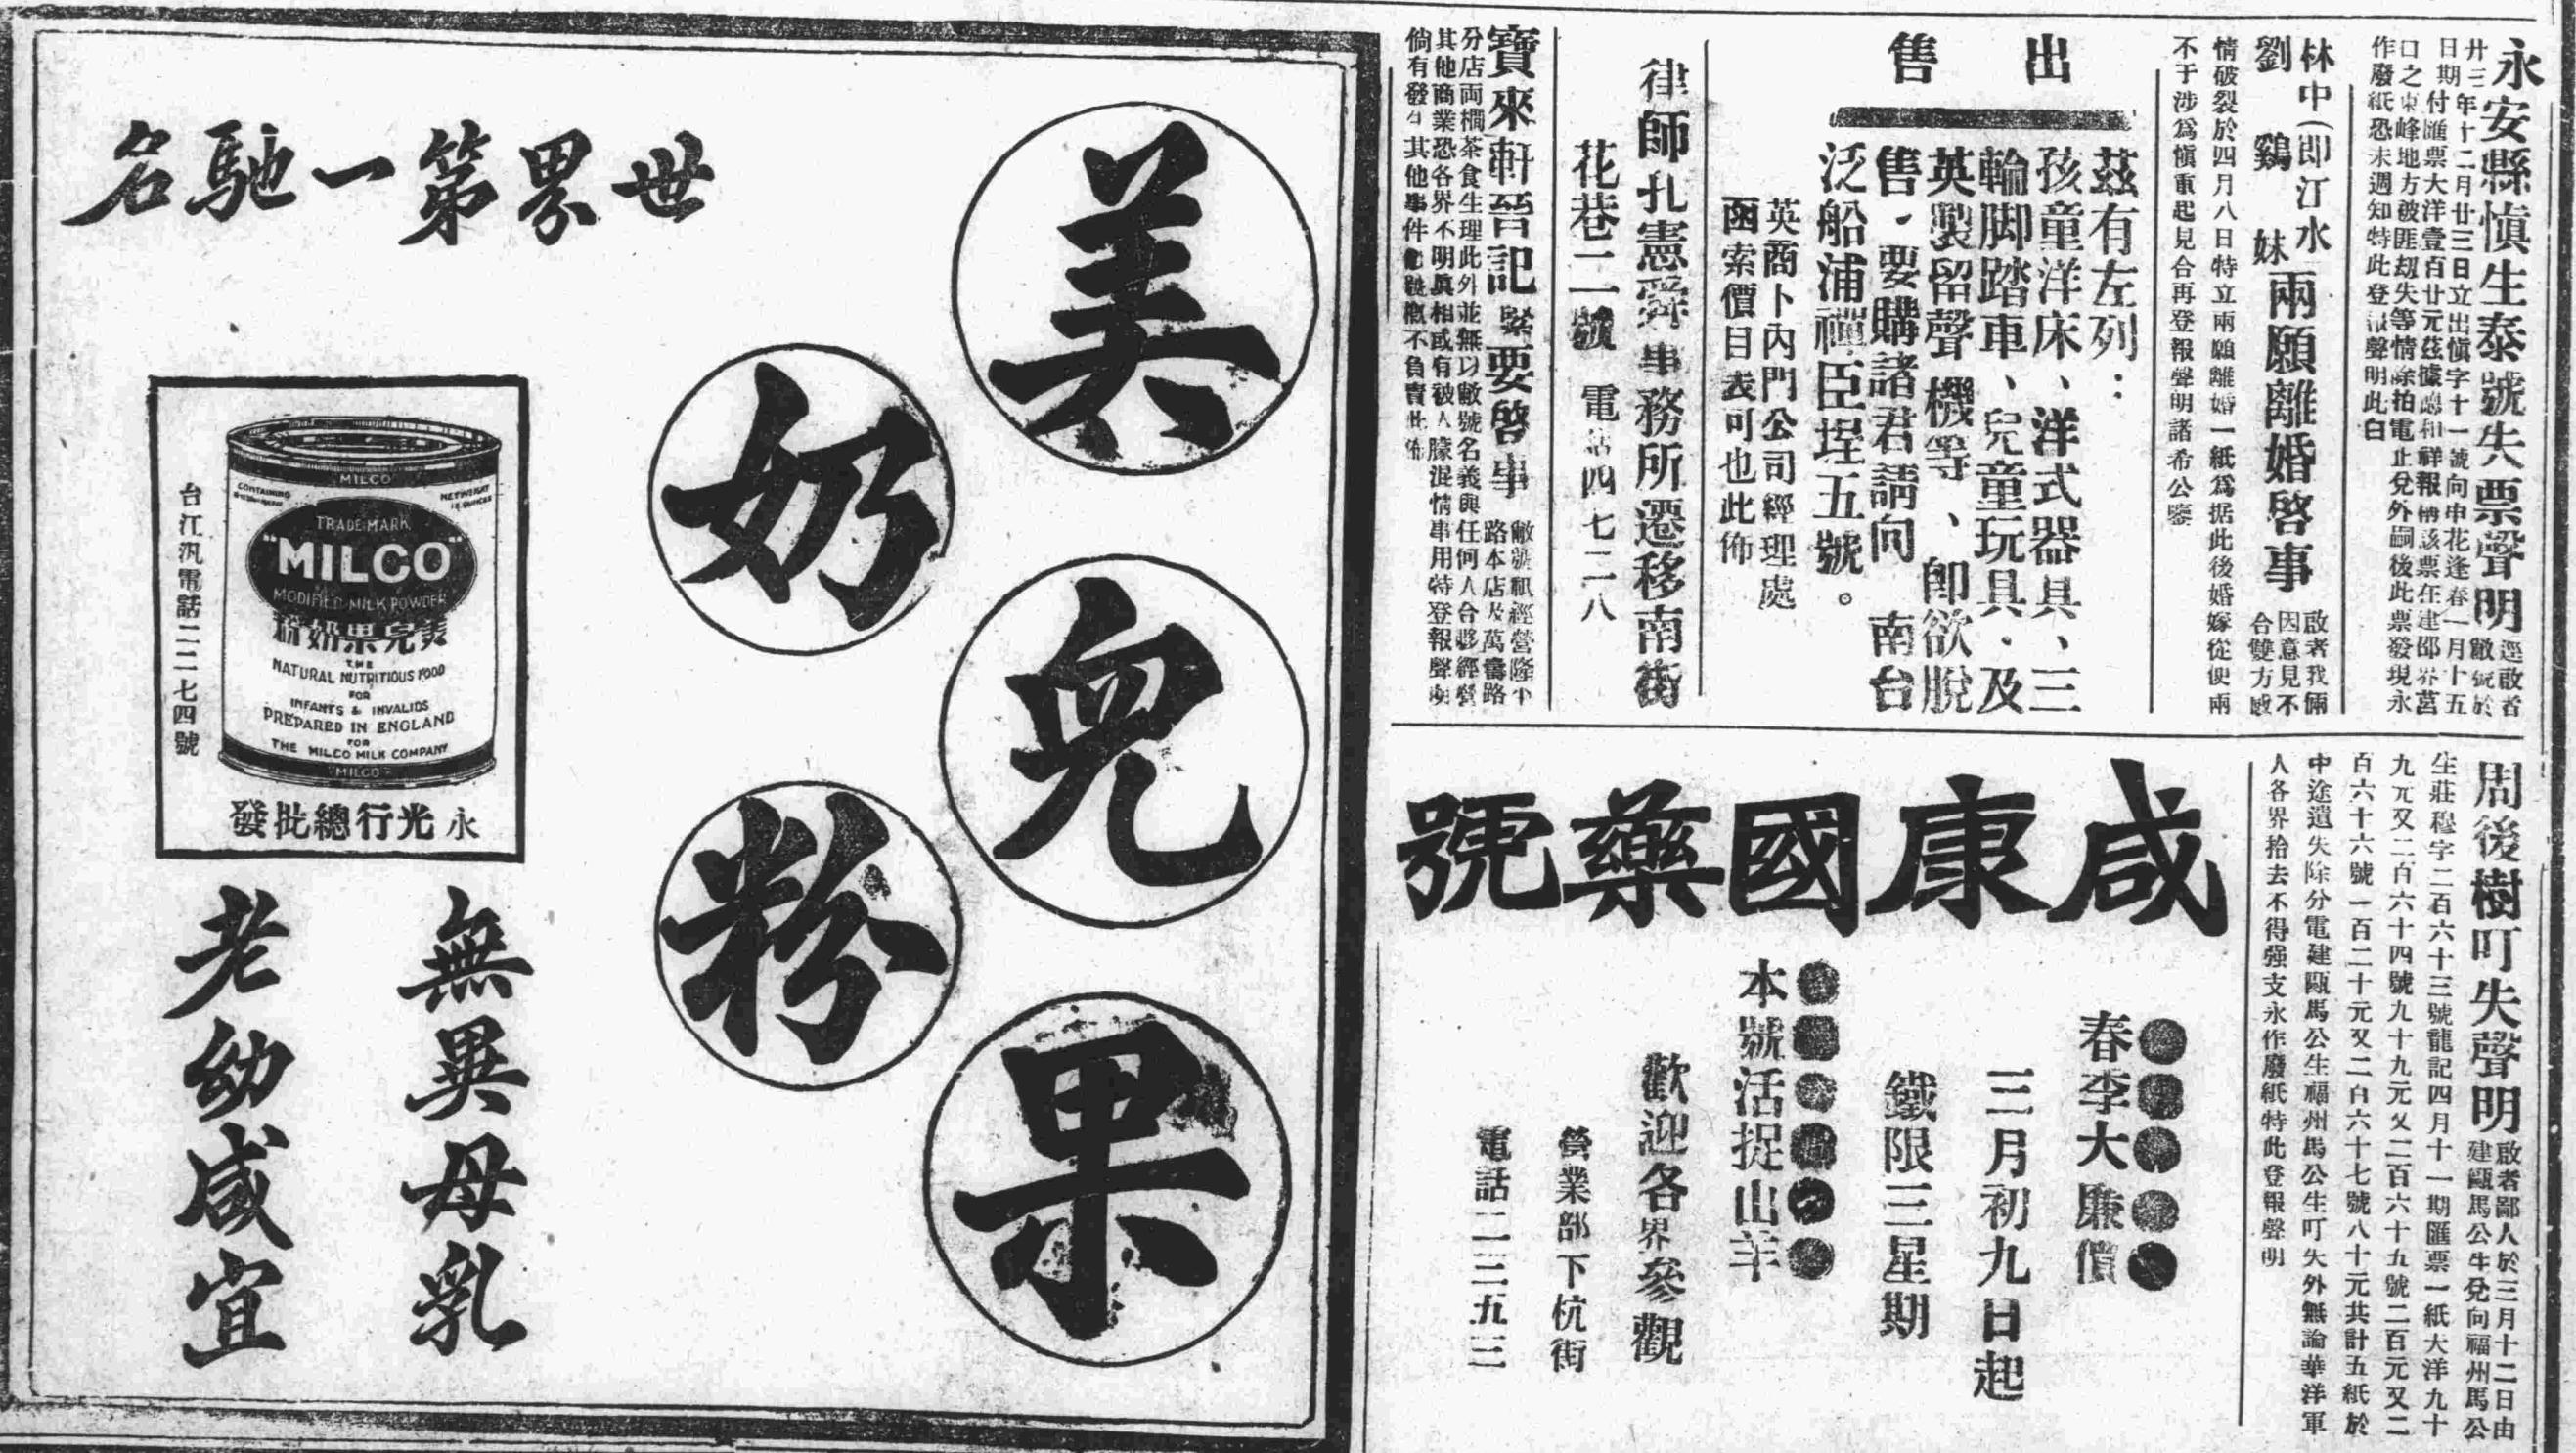 永安縣慎生泰號失票聲明
逕啟者敝號於
廿三年十二月廿三日立出慎字十一號向申花逢春一月十五
日期付匯票大洋壹百廿元茲據應和祥報稱該票在建邵界莒
口之東峰地方被匪刧失等情除拍電止兌外嗣後此票發現永
作廢紙恐未週知特此登報聲明此白
林中(即江水
劉鷄妹
兩願離婚啓事
啟者我倆
因意見不
合雙方感
情破裂於四月八日特立兩願離婚一紙爲据此後婚嫁從便兩
不干涉爲愼重起見合再登報聲明諸希公鑒
出售
茲有左列:
孩童洋床、洋式器具、三
輪脚踏車、兒童玩具·及
英製留聲機等、卽欲脫
售·要購諸君請向南台
泛船浦禪臣埕五號。
英商卜內門公司經理處
函索價目表可也此佈
律師孔憲舜事務所遷移南街
花巷二號 電話四七二八
寶來軒晉記緊要啓事
敝號祇經營隆平
路本店及萬壽路
分店両櫩茶食生理此外並無以敝號名義與任何人合夥經營
其他商業恐各界不明眞相或有被人朦混情事用特登報聲明
倘有發生其他事件敝號槪不負責此佈
周後樹叮失聲明
啟者鄙人於三月十二日由
建甌馬公生兌向福州馬公
生莊穆字二百六十三號龍記四月十一期匯票一紙大洋九十
九元又二百六十四號九十九元又二百六十五號二百元又二
百六十六號一百二十元又二百六十七號八十元共計五紙於
中途遺失除分電建甌馬公生福州馬公生叮失外無論華洋軍
人各界拾去不得强支永作廢紙特此登報聲明
咸康國藥號
春季大廉價
三月初九日起
鐵限三星期
本號活捉山羊
歡迎各界參觀
營業部下杭街
電話二三五三
美兒果
奶粉
世界第一馳名
MILCO
CONTAINING
NETWEIGHT
TRADE MARK
"MILCO"
MODIFIED MILK POWDER
美兒果奶粉
THE
NATURAL NUTRITIOUS FOOD
FOR
INFANTS & INVALIDS
PREPARED IN ENGLAND
FOR
THE MILCO MILK COMPANY
"MILCO"
台江汎電話二二七四號
永光行總批發
無異母乳
老幼咸宜